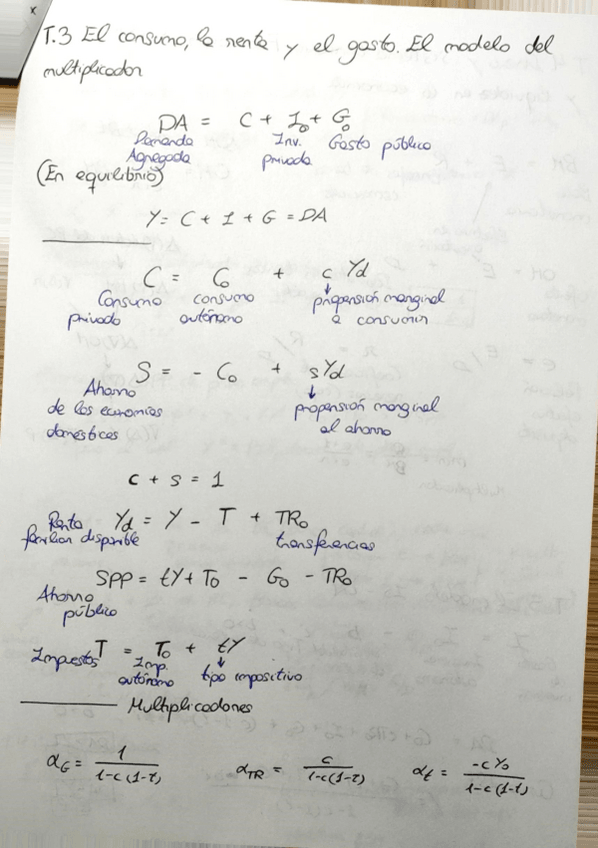 T.3 El consumo, la renta y el gasto. El modelo del
multiplicador
DA = C + I₀ + G₀
Demanda Agregada Inv. privada Gasto público
(En equilibrio)
Y = C + I + G = DA
C = C₀ + c Yd
Consumo privado consumo autónomo ↓ propensión marginal a consumir
S = - C₀ + sYd
Ahorro de las economías domésticas ↓ propensión marginal al ahorro
c + s = 1
Yd = Y - T + TR₀
Renta familiar disponible transferencias
SPP = tY + T₀ - G₀ - TR₀
Ahorro público
T = T₀ + tY
Impuestos Imp. autónomo ↓ tipo impositivo
Multiplicadores
α_G = 1 / 1-c(1-t) α_TR = c / 1-c(1-t) α_t = -cY₀ / 1-c(1-t)